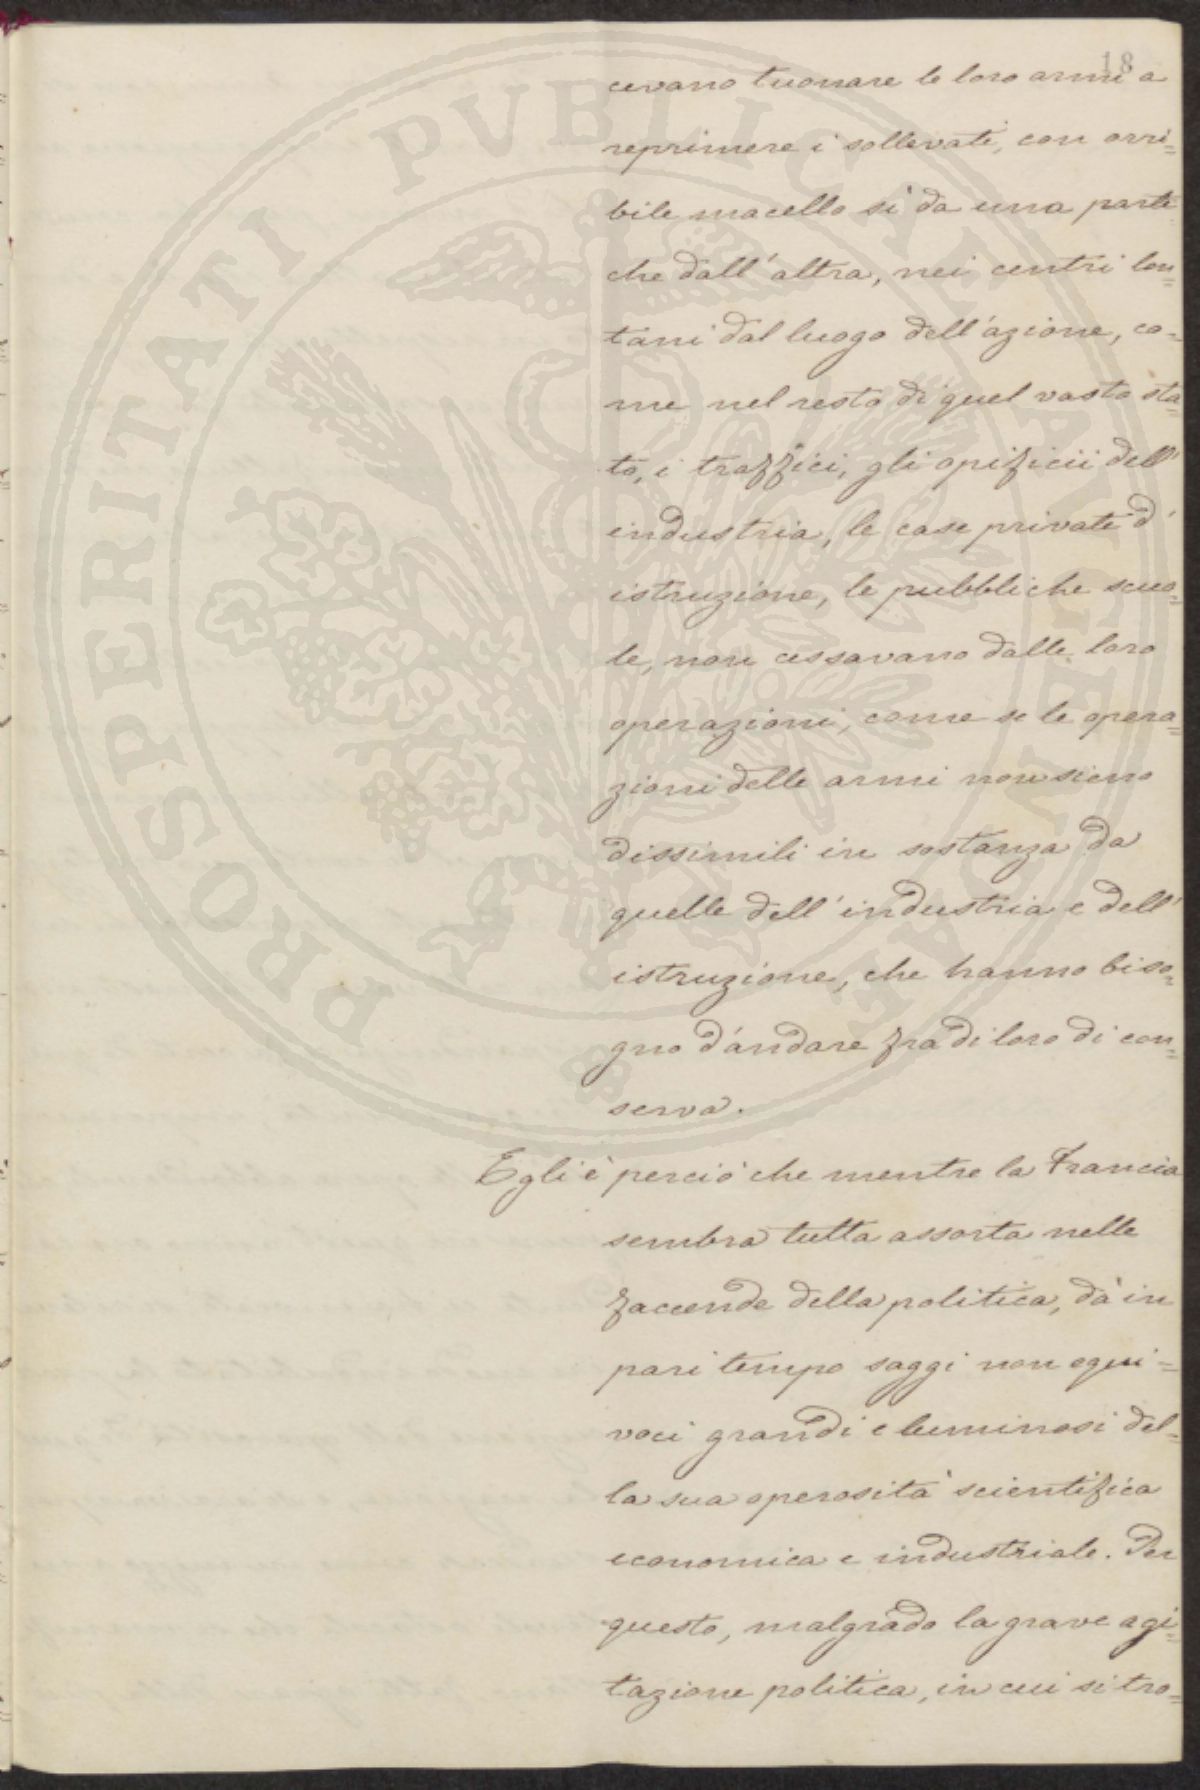 18
cevano tuonare le loro armi a
reprimere i sollevati, con orri=
bile macello sì da una parte
che dall'altra, nei centri lon=
tani dal luogo dell'azione, co=
me nel resto di quel vasto sta=
to, i traffici, gli opificii dell'
industria, le case private d'
istruzione, le pubbliche scuo=
le, non cessavano dalle loro
operazioni, come se le opera=
zioni delle armi non sieno
dissimili in sostanza da
quelle dell'industria e dell'
istruzione, che hanno biso=
gno d'andare fra di loro di con=
serva.
Egli è perciò che mentre la Francia
sembra tutta assorta nelle
faccende della politica, dà in
pari tempo saggi non equi=
voci grandi e luminosi del=
la sua operosità scientifica
economica e industriale. Per
questo, malgrado la grave agi=
tazione politica, in cui si tro=
PROSPERITATI PUBLICAE AUGENDAE